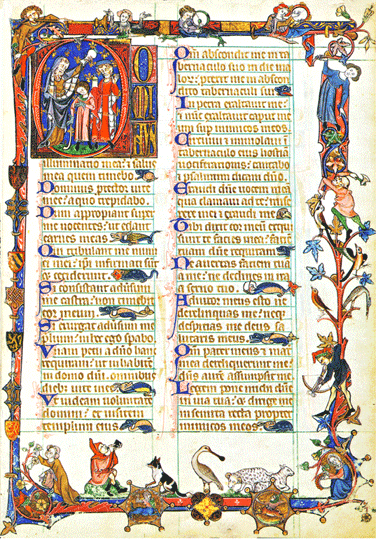 illuminatio mea: & salus
mea quem timebo
Dominus protector uite
mee: a quo trepidabo
Dum appropiant super
me nocentes: ut edant
carnes meas
Qui tribulant me inimi
ci mei: ipsi infirmati sunt
& ceciderunt
Si consistant adusum
me castra: non timebit
cor meum
Si exurgat adusum me
plium: in hoc ego spabo
Unam petii a dno hanc
requiram: ut inhabitem
in domo dni omnibus
dieb: uite mee
Ut uideam uoluntatem
domini: & uisitem
templum eius
Qm abscondit me in ta
bernaculo suo in die ma
lor: protexit me in abscon
dito tabernaculi sui
In petra exaltauit me:
& nunc exaltauit caput me
um sup inimicos meos
Circuiui & immolaui i
tabernaculo eius hostia
uociferationis: cantabo
& psalmum dicam dno
Exaudi dne uocem mea
qua clamaui ad te: mise
rere mei & exaudi me
Tibi dixit cor meum exqui
siuit te facies mea: facie
tuam dne requiram
Ne auertas faciem tua
a me: ne declines in ira
a seruo tuo
Adiutor meus esto ne
derelinquas me: neq
despicias me deus sa
lutaris meus
Qm pater meus & mat
mea dereliquerunt me:
dns autem assumpsit me
Legem pone michi dne
in uia tua: & dirige me
in semita recta propter
inimicos meos